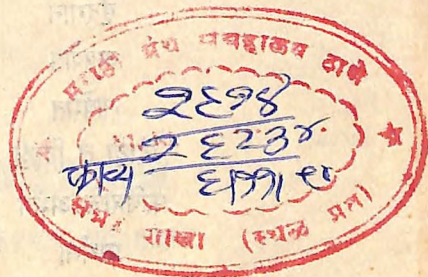 मराठी ग्रंथ संग्रहालय ठाणे
२६१४
२६२३४
काव्य
शाखा (स्थळ प्रत)